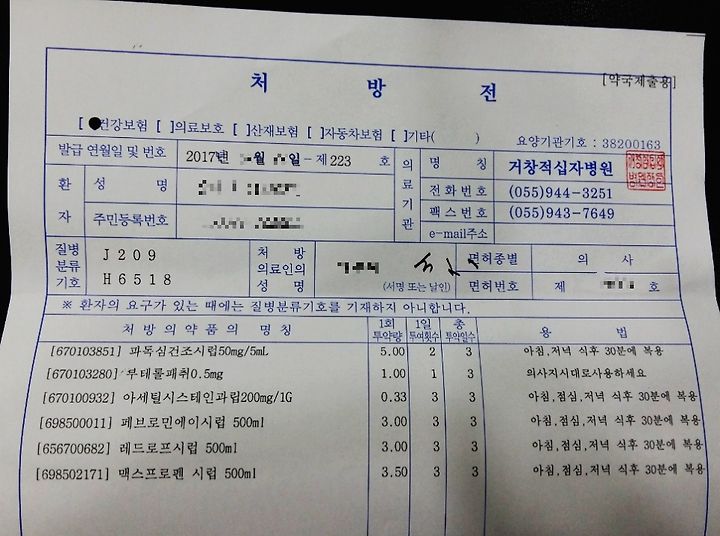 처 방 전
[약국제출용]
[ ]건강보험 [ ]의료보호 [ ]산재보험 [ ]자동차보험 [ ]기타( ) 요양기관기호 : 38200163
발급 연월일 및 번호 2017년 월 일 - 제 223 호
의료기관
명 칭 거창적십자병원
전화번호 (055)944-3251
팩스번호 (055)943-7649
e-mail주소
환자
성 명
주민등록번호
질병분류기호 J209
H6518
처 방 의료인의 성 명 (서명 또는 날인)
면허종별 의 사
면허번호 제 호
※ 환자의 요구가 있는 때에는 질병분류기호를 기재하지 아니합니다.
처 방 의 약 품 의 명 칭 1회 투약량 1일 투여횟수 총 투약일수 용 법
[670103851] 파독심건조시럽50mg/5mL 5.00 2 3 아침,저녁 식후 30분에 복용
[670103280] 부테롤패취0.5mg 1.00 1 3 의사지시대로사용하세요
[670100932] 아세틸시스테인과립200mg/1G 0.33 3 3 아침,점심,저녁 식후 30분에 복용
[698500011] 페브로민에이시럽 500ml 3.00 3 3 아침,점심,저녁 식후 30분에 복용
[656700682] 레드로프시럽 500ml 3.00 3 3 아침,점심,저녁 식후 30분에 복용
[698502171] 맥스프로펜 시럽 500ml 3.50 3 3 아침,점심,저녁 식후 30분에 복용